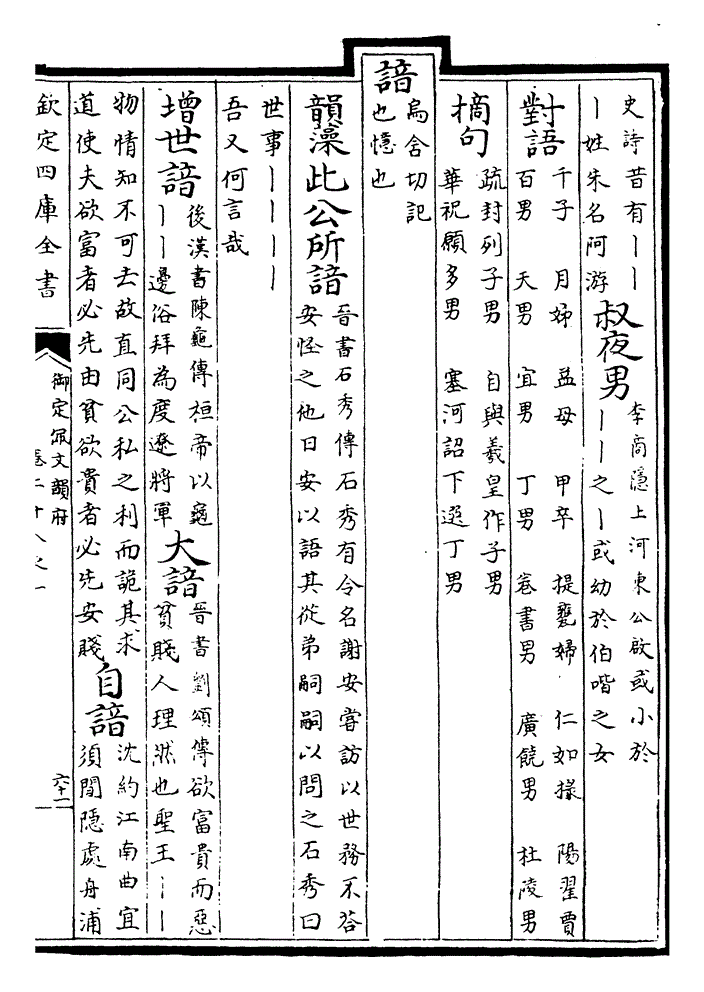 史詩昔有丨丨
丨姓朱名阿游
叔夜男
李商隱上河東公啟或小於
丨丨之丨或幼於伯喈之女
對語
千子　月姊　益母　甲卒　提甕婦　仁如掾　陽翟賈
百男　天男　宜男　丁男　卷書男　廣饒男　杜陵男
摘句
疏封列子男　自與羲皇作子男
華祝願多男　塞河詔下選丁男
諳
烏含切記
也憶也
韻藻
此公所諳
晉書石秀傳石秀有令名謝安嘗訪以世務不答
安怪之他日安以語其從弟嗣嗣以問之石秀曰
世事丨丨丨丨
吾又何言哉
增
世諳
後漢書陳龜傳桓帝以龜
丨丨邊俗拜為度遼將軍
大諳
晉書劉頌傳欲富貴而惡
貧賤人理然也聖王丨丨
物情知不可去故直同公私之利而詭其求
道使夫欲富者必先由貧欲貴者必先安賤
自諳
沈約江南曲宜
須閒隱處舟浦
欽定四庫全書
御定佩文韻府
卷二十八之一
六十一